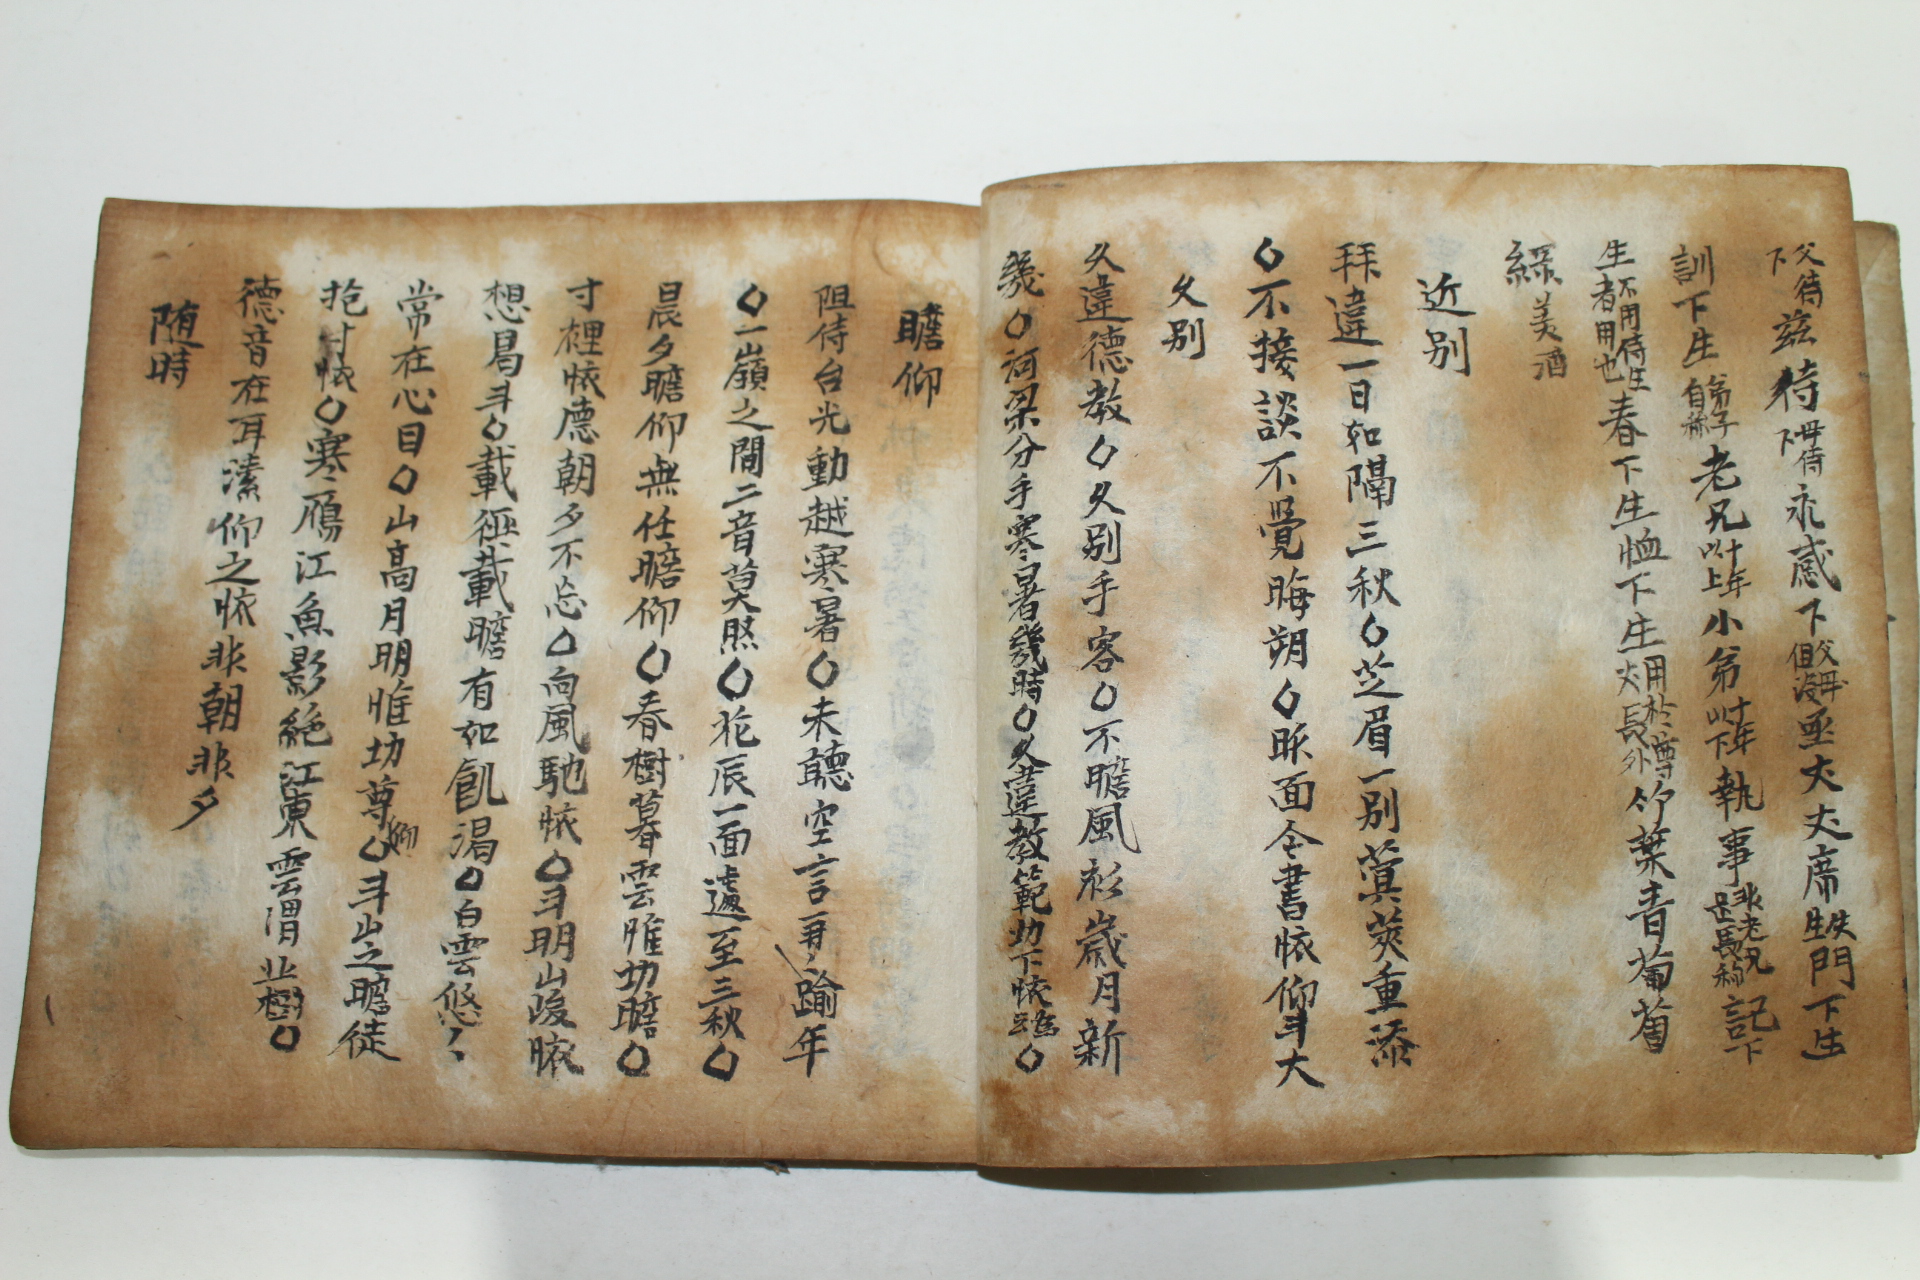 下父侍玆侍下母侍永感下父母俱沒函丈丈席先生門下生
訓下生弟子自称老兄十年以上小弟十年以下執事非老兄是長称記下
生不用侍生者用也春下生恤下生用於尊丈長外竹葉青葡萄
綠美酒
近別
拜違一日如隔三秋○芝眉一別蓂莢重添
○不接談不覺晦朔○昨面今書悵仰斗大
久別
久違德教○久別手客○不瞻風衫歲月新
幾○河梁分手寒暑幾時○久違教範功下悵○
瞻仰
阻侍台光動越寒暑○未聽空言再踰年
○一嶺之間二音莫煦○花辰一面遽至三秋○
晨夕瞻仰無任瞻仰○春樹暮雲惟切瞻○
寸裡悵德朝夕不忘○向風馳悵○斗明山峻
想曷斗○載極載瞻有如飢渴○白雲悠〻
常在心目○山高月明惟功尊仰○斗山之瞻徒
抱寸悵○寒鴈江魚影絕江東雲渭北樹○
德音在耳溸仰之悵非朝非夕
随時